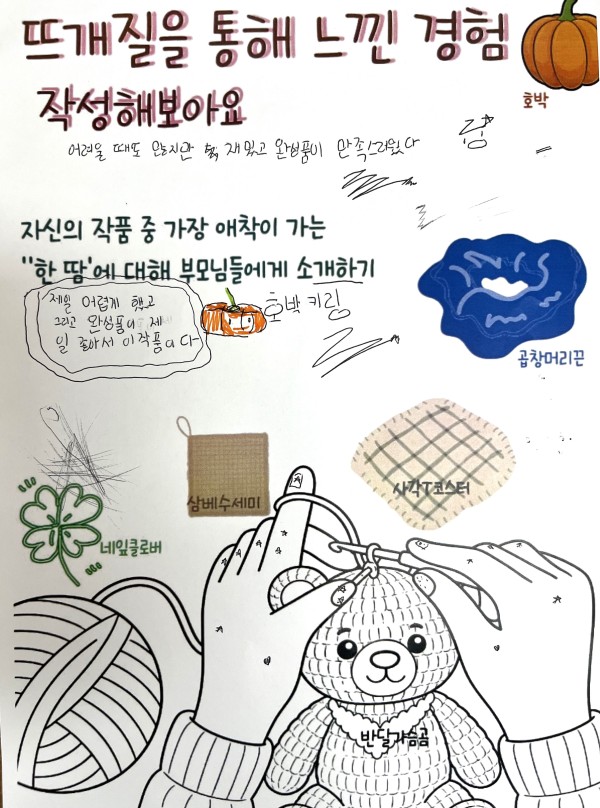 뜨개질을 통해 느낀 경험
호박
작성해보아요
어려울 때도 있지만 재밌고 완성품이 만족스러웠다
자신의 작품 중 가장 애착이 가는
"한 땀'에 대해 부모님들에게 소개하기
제일 어렵게 했고
그리고 완성품이 제
일 좋아서 이작품이다
호박 키링
곱창머리끈
삼베수세미
사각T코스터
네잎클로버
반달가슴곰